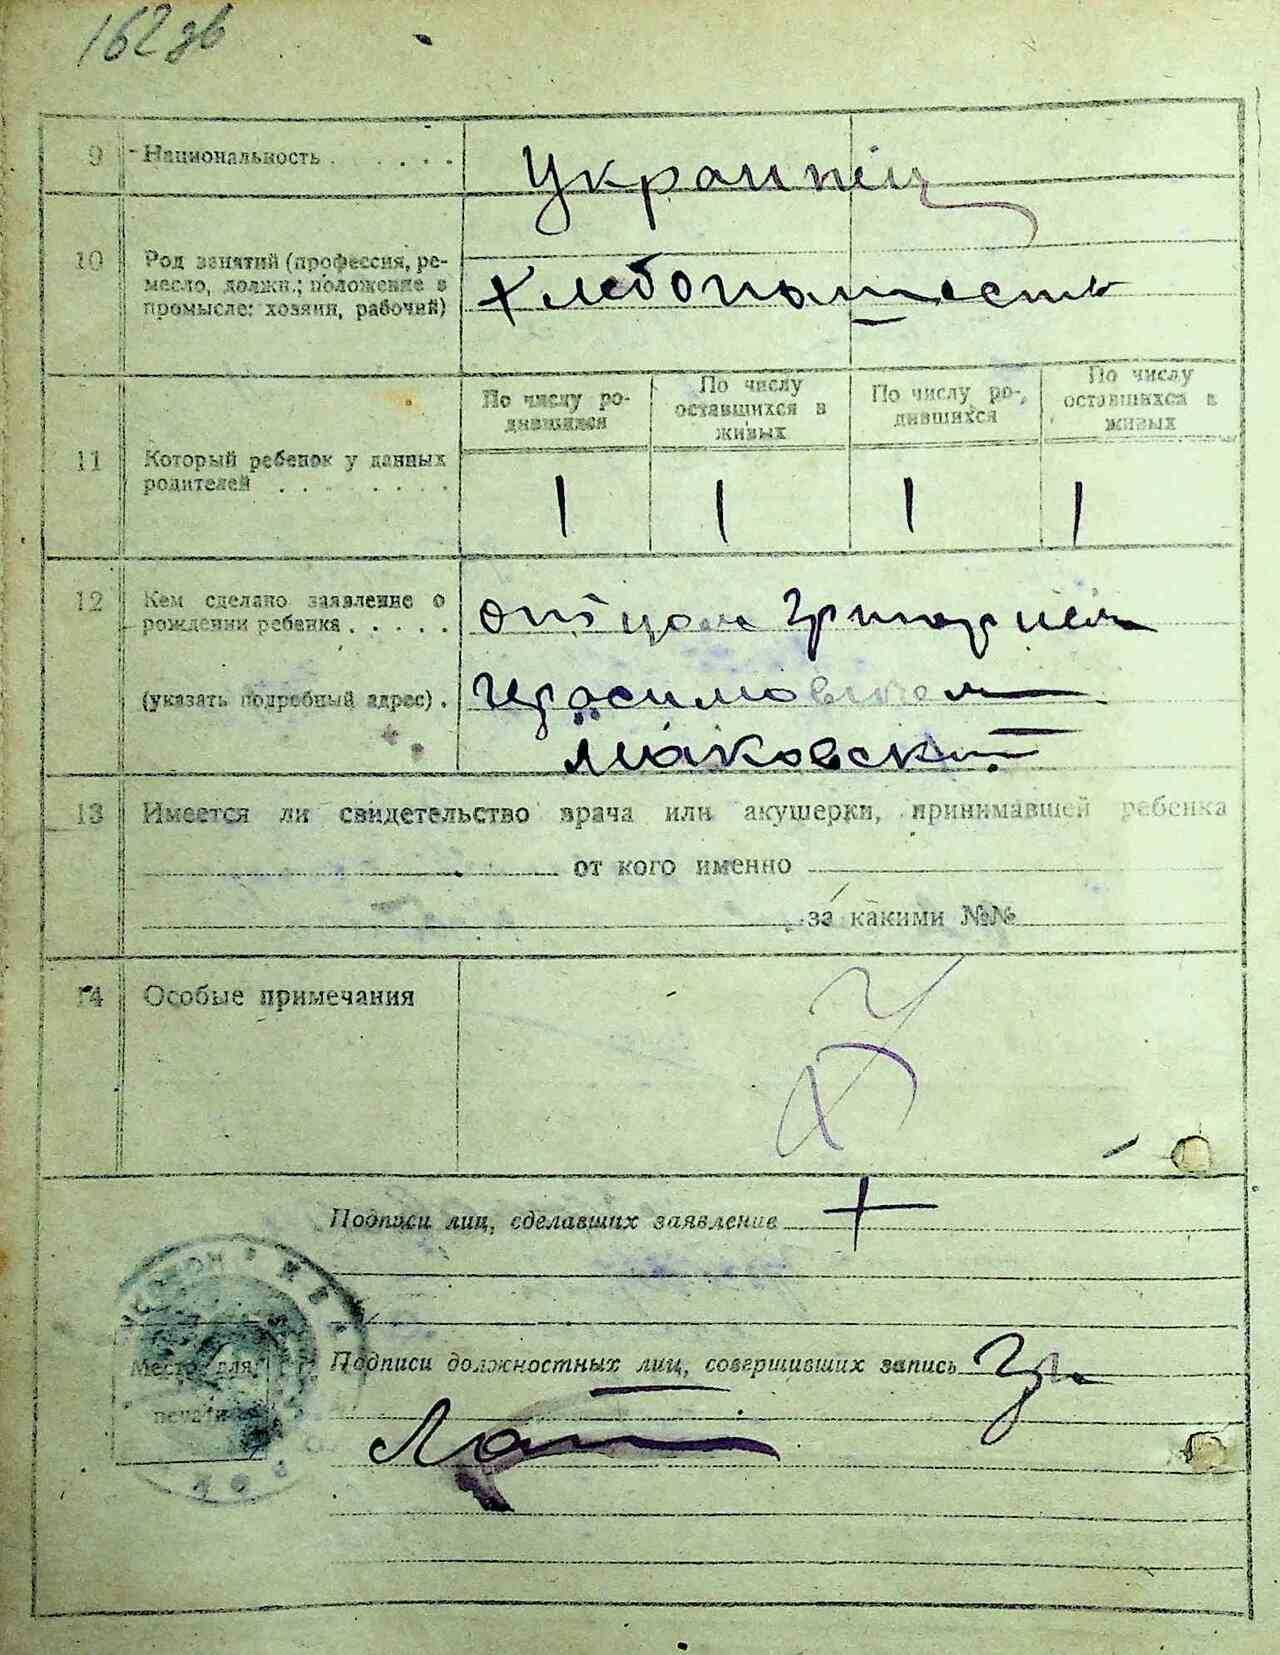 162 зв
9 Национальность
Украинец
10 Род занятий (профессия, ре-
месло, должн.; положение в
промысле: хозяин, рабочий)
Хлебопашест
11 Который ребенок у данных
родителей
По числу ро-
дившихся
По числу
оставшихся в
живых
По числу ро-
дившихся
По числу
оставшихся в
живых
1 1 1 1
12 Кем сделано заявление о
рождении ребенка
(указать подробный адрес)
отцом Григорием
Герасимовичем
Маковский
13 Имеется ли свидетельство врача или акушерки, принимавшей ребенка
от кого именно
за какими №№
14 Особые примечания
Подписи лиц, сделавших заявление +
Место для
печати
Подписи должностных лиц, совершивших запись